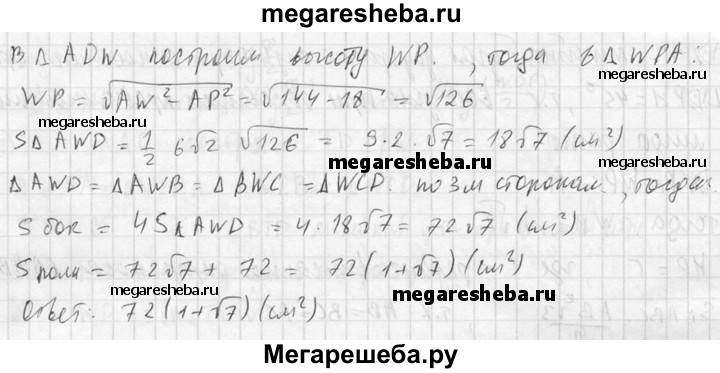 megaresheba.ru
В Δ ADW построим высоту WP., тогда в Δ WPA:
megaresheba.ru
WP = √(AW² - AP²) = √(144 - 18) = √126
megaresheba.ru
SΔ AWD = 1/2 6√2 √126 = 9·2·√7 = 18√7 (см²)
megaresheba.ru megaresheba.ru
Δ AWD = Δ AWB = Δ BWC = Δ WCD. по 3м сторонам, тогда:
S бок = 4SΔ AWD = 4·18√7 = 72√7 (см²)
S полн = 72√7 + 72 = 72(1+√7) (см²)
megaresheba.ru megaresheba.ru
Ответ: 72(1+√7) (см²)
Мегарешеба.ру